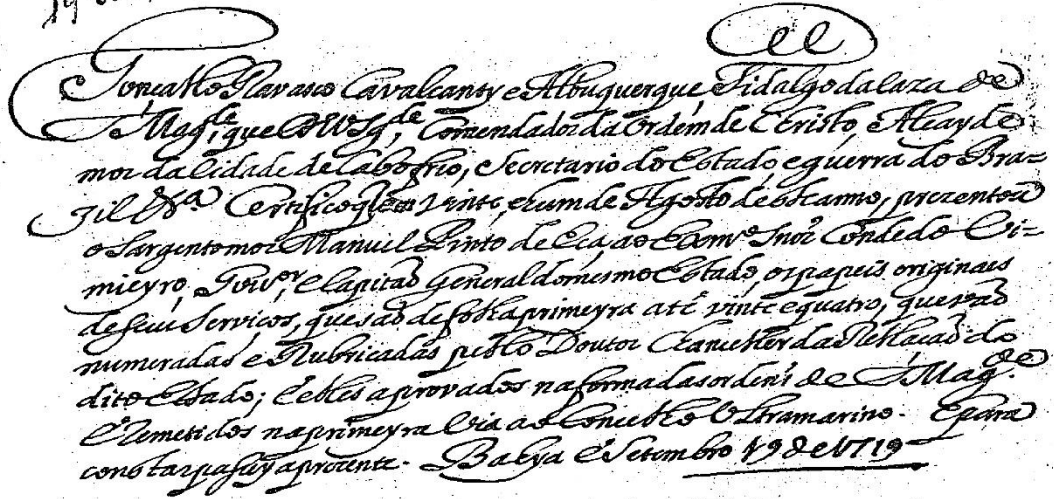 Gonçallo Ravasco Cavalcanty e Albuquerque, Fidalgo da Caza de
S Mag.de, que Ds g.de, Comendador da Ordem de Christo, e Alcayde
mor da Cidade de Cabo frio, e Secretario do Estado, e guerra do Bra=
zil &.ª Certifico q em vinte, e hum de Agosto deste anno, prezentou
o Sargento mor Manuel Pinto de Eça ao Exm.º Snor Conde do Vi=
mieyro, Gov.or, e Capitaõ General do mesmo Estado, os papeis originaes
de seus Serviços, que saõ de folha primeyra até vinte e quatro, que vaõ
numeradas e Rubricadas pello Doutor Chanceller da Rellacaõ do
dito Estado; e elles aprovados na forma das ordens de S Mag.de
e Remetidos na primeyra via ao Concelho Ultramarino. E para
constar passey a prezente. Bahya e Setembro 19 de 1719